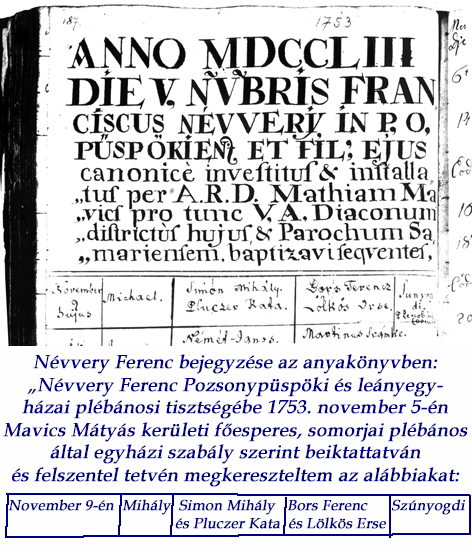 187. 1753
ANNO MDCCLIII
DIE V, NVBRIS FRAN
CISCUS NÉVVERY, IN P, O,
PÜSPÖKIEN, ET FIL; EJUS
canonicè investitus & installa
„tus per A.R.D. Mathiam Ma
„vics pro tunc V, A, Diaconum
„districtûs hujus, & Parochum Sa
„mariensem, baptizavi seqventes,
November 9 hujus Michael. Simón Mihály. Pluczer Kata. Bors Ferencz Lölkös Erse. Sunyog di
Német János. Martinus
Névvery Ferenc bejegyzése az anyakönyvben:
„Névvery Ferenc Pozsonypüspöki és leányegy-
házai plébánosi tisztségébe 1753. november 5-én
Mavics Mátyás kerületi főesperes, somorjai plébános
által egyházi szabály szerint beiktattatván
és felszentel tetvén megkereszteltem az alábbiakat:
November 9-én Mihály Simon Mihály és Pluczer Kata Bors Ferenc és Lölkös Erse Szúnyogdi